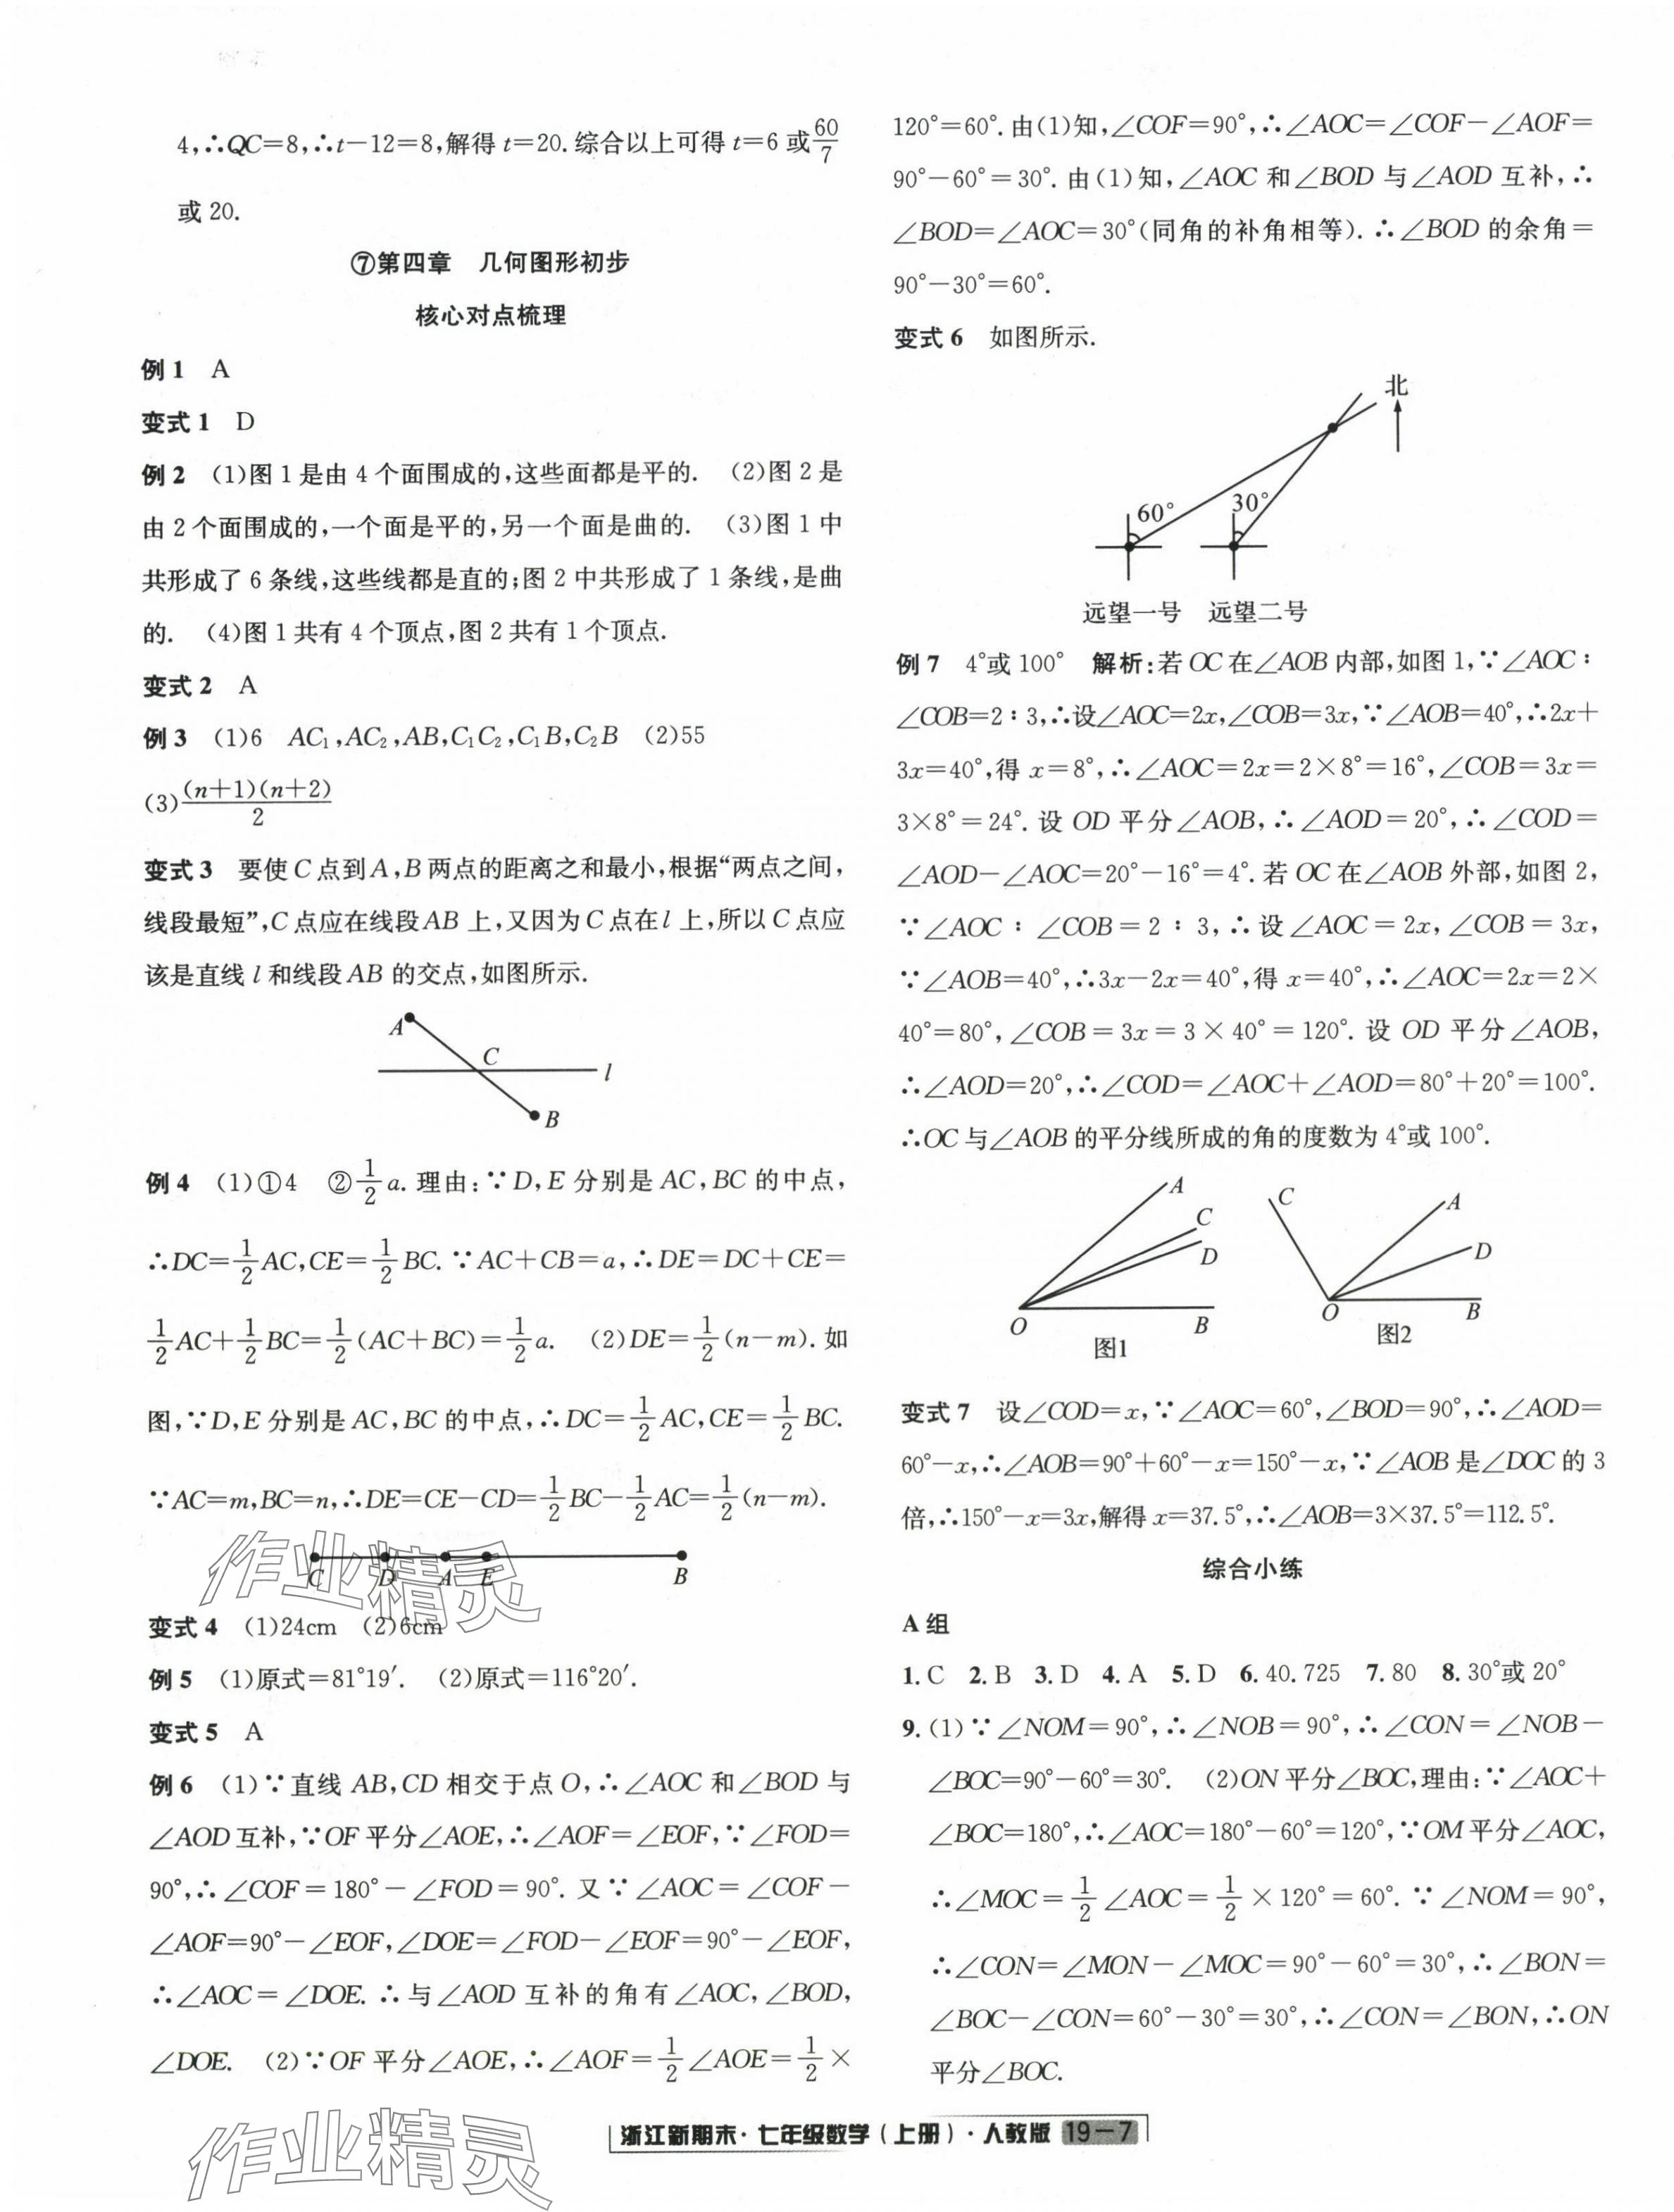 4,∴QC=8,∴t-12=8,解得 t=20.综合以上可得 t=6 或60/7
或 20.
⑦第四章 几何图形初步
核心对点梳理
例 1 A
变式 1 D
例 2 (1)图 1 是由 4 个面围成的,这些面都是平的. (2)图 2 是
由 2 个面围成的,一个面是平的,另一个面是曲的. (3)图 1 中
共形成了 6 条线,这些线都是直的;图 2 中共形成了 1 条线,是曲
的. (4)图 1 共有 4 个顶点,图 2 共有 1 个顶点.
变式 2 A
例 3 (1)6 AC₁,AC₂,AB,C₁C₂,C₁B,C₂B (2)55
(3)(n+1)(n+2)/2
变式 3 要使 C 点到 A,B 两点的距离之和最小,根据“两点之间,
线段最短”,C 点应在线段 AB 上,又因为 C 点在 l 上,所以 C 点应
该是直线 l 和线段 AB 的交点,如图所示.
A
C
l
B
例 4 (1)①4 ②1/2a.理由:∵D,E 分别是 AC,BC 的中点,
∴DC=1/2AC,CE=1/2BC.∵AC+CB=a,∴DE=DC+CE=
1/2AC+1/2BC=1/2(AC+BC)=1/2a. (2)DE=1/2(n-m).如
图,∵D,E 分别是 AC,BC 的中点,∴DC=1/2AC,CE=1/2BC.
∵AC=m,BC=n,∴DE=CE-CD=1/2BC-1/2AC=1/2(n-m).
C D A E B
变式 4 (1)24cm (2)6cm
例 5 (1)原式=81°19′. (2)原式=116°20′.
变式 5 A
例 6 (1)∵直线 AB,CD 相交于点 O,∴∠AOC 和∠BOD 与
∠AOD 互补,∵OF 平分∠AOE,∴∠AOF=∠EOF,∵∠FOD=
90°,∴∠COF=180°-∠FOD=90°.又∵∠AOC=∠COF-
∠AOF=90°-∠EOF,∠DOE=∠FOD-∠EOF=90°-∠EOF,
∴∠AOC=∠DOE.∴与∠AOD 互补的角有∠AOC,∠BOD,
∠DOE. (2)∵OF 平分∠AOE,∴∠AOF=1/2∠AOE=1/2×
120°=60°.由(1)知,∠COF=90°,∴∠AOC=∠COF-∠AOF=
90°-60°=30°.由(1)知,∠AOC 和∠BOD 与∠AOD 互补,∴
∠BOD=∠AOC=30°(同角的补角相等).∴∠BOD 的余角=
90°-30°=60°.
变式 6 如图所示.
北
60° 30°
远望一号 远望二号
例 7 4°或 100° 解析:若 OC 在∠AOB 内部,如图 1,∵∠AOC∶
∠COB=2∶3,∴设∠AOC=2x,∠COB=3x,∵∠AOB=40°,∴2x+
3x=40°,得 x=8°,∴∠AOC=2x=2×8°=16°,∠COB=3x=
3×8°=24°.设 OD 平分∠AOB,∴∠AOD=20°,∴∠COD=
∠AOD-∠AOC=20°-16°=4°.若 OC 在∠AOB 外部,如图 2,
∵∠AOC∶∠COB=2∶3,∴设∠AOC=2x,∠COB=3x,
∵∠AOB=40°,∴3x-2x=40°,得 x=40°,∴∠AOC=2x=2×
40°=80°,∠COB=3x=3×40°=120°.设 OD 平分∠AOB,
∴∠AOD=20°,∴∠COD=∠AOC+∠AOD=80°+20°=100°.
∴OC 与∠AOB 的平分线所成的角的度数为 4°或 100°.
A
C
D
O B
图1
C
A
D
O B
图2
变式 7 设∠COD=x,∵∠AOC=60°,∠BOD=90°,∴∠AOD=
60°-x,∴∠AOB=90°+60°-x=150°-x,∵∠AOB 是∠DOC 的 3
倍,∴150°-x=3x,解得 x=37.5°,∴∠AOB=3×37.5°=112.5°.
综合小练
A 组
1. C 2. B 3. D 4. A 5. D 6. 40.725 7. 80 8. 30°或 20°
9. (1)∵∠NOM=90°,∴∠NOB=90°,∴∠CON=∠NOB-
∠BOC=90°-60°=30°. (2)ON 平分∠BOC,理由:∵∠AOC+
∠BOC=180°,∴∠AOC=180°-60°=120°,∵OM 平分∠AOC,
∴∠MOC=1/2∠AOC=1/2×120°=60°.∵∠NOM=90°,
∴∠CON=∠MON-∠MOC=90°-60°=30°,∴∠BON=
∠BOC-∠CON=60°-30°=30°,∴∠CON=∠BON,∴ON
平分∠BOC.
浙江新期末·七年级数学(上册)·人教版 19-7
作业精灵
作业精灵